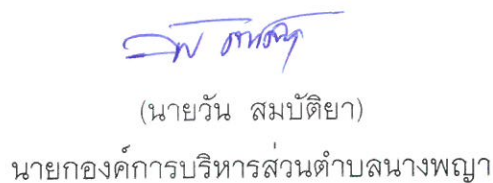 (นายวัน สมบัติยา)
นายกองค์การบริหารส่วนตำบลนางพญา